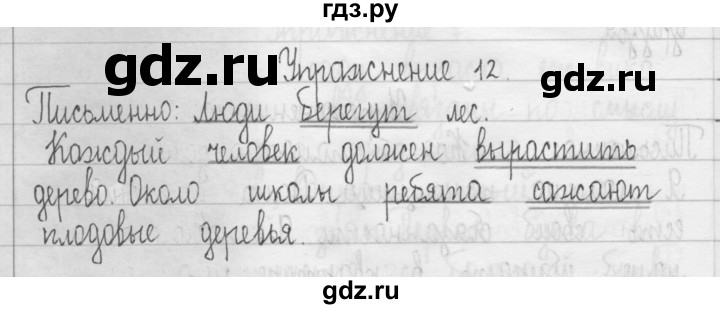 гдз.ру
gdz.ru
gdz.ru
Упражнение 12.
Письменно: Люди берегут лес.
Каждый человек должен вырастить
дерево. Около школы ребята сажают
плодовые деревья.
gdz.ru
gdz.ru
gdz.ru